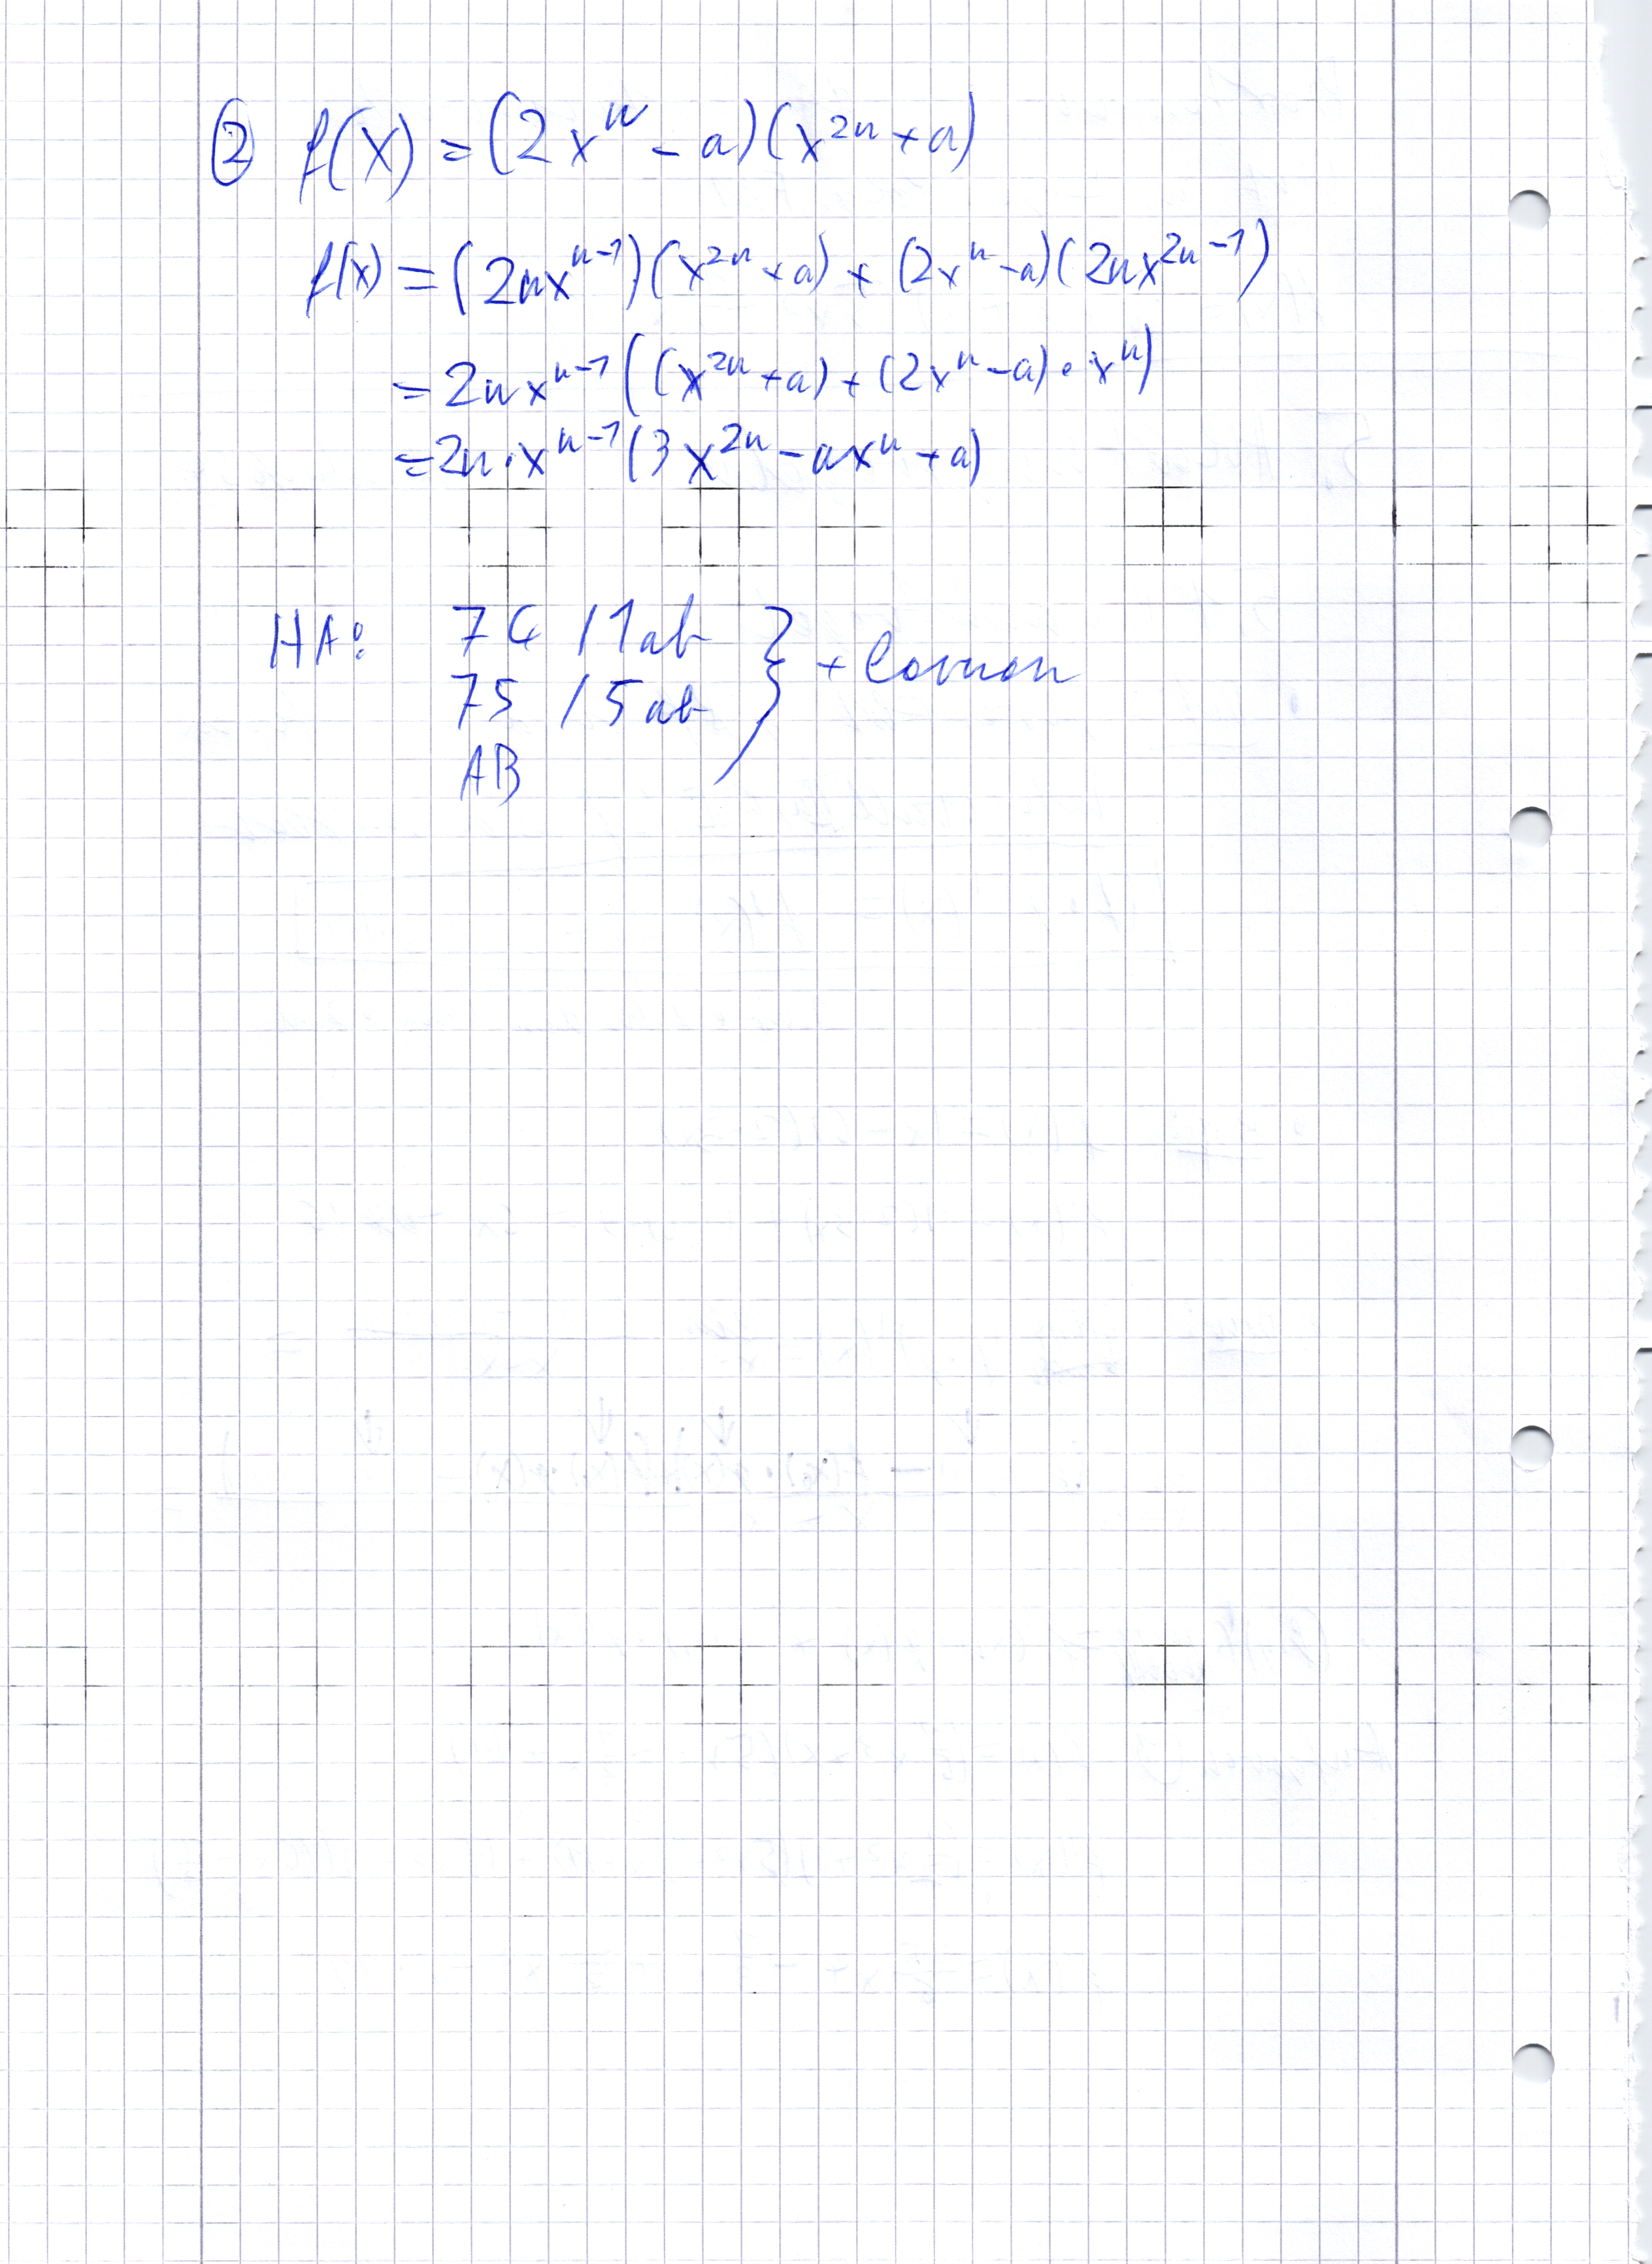 ② f(x) = (2x^n - a)(x^{2n} + a)
f(x) = (2nx^{n-1})(x^{2n} + a) + (2x^n - a)(2nx^{2n-1})
= 2nx^{n-1}((x^{2n} + a) + (2x^n - a) • x^n)
= 2n • x^{n-1}(3x^{2n} - ax^n + a)
HA: 74 / 1ab } +
75 / 5ab
AB